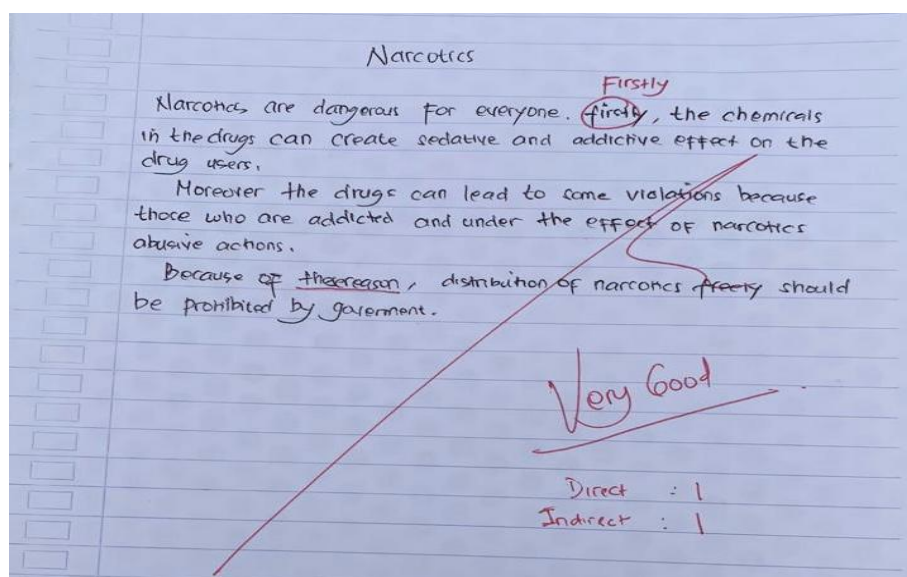 Narcotics
Firstly
Narcotics are dangerous for everyone. firstly, the chemicals
in the drugs can create sedative and addictive effect on the
drug users.
Moreover the drugs can lead to some violations because
those who are addicted and under the effect of narcotics
abusive actions.
Because of thesereason, distribution of narcotics freely should
be prohibited by goverment.
Very Good
Direct : 1
Indirect : 1